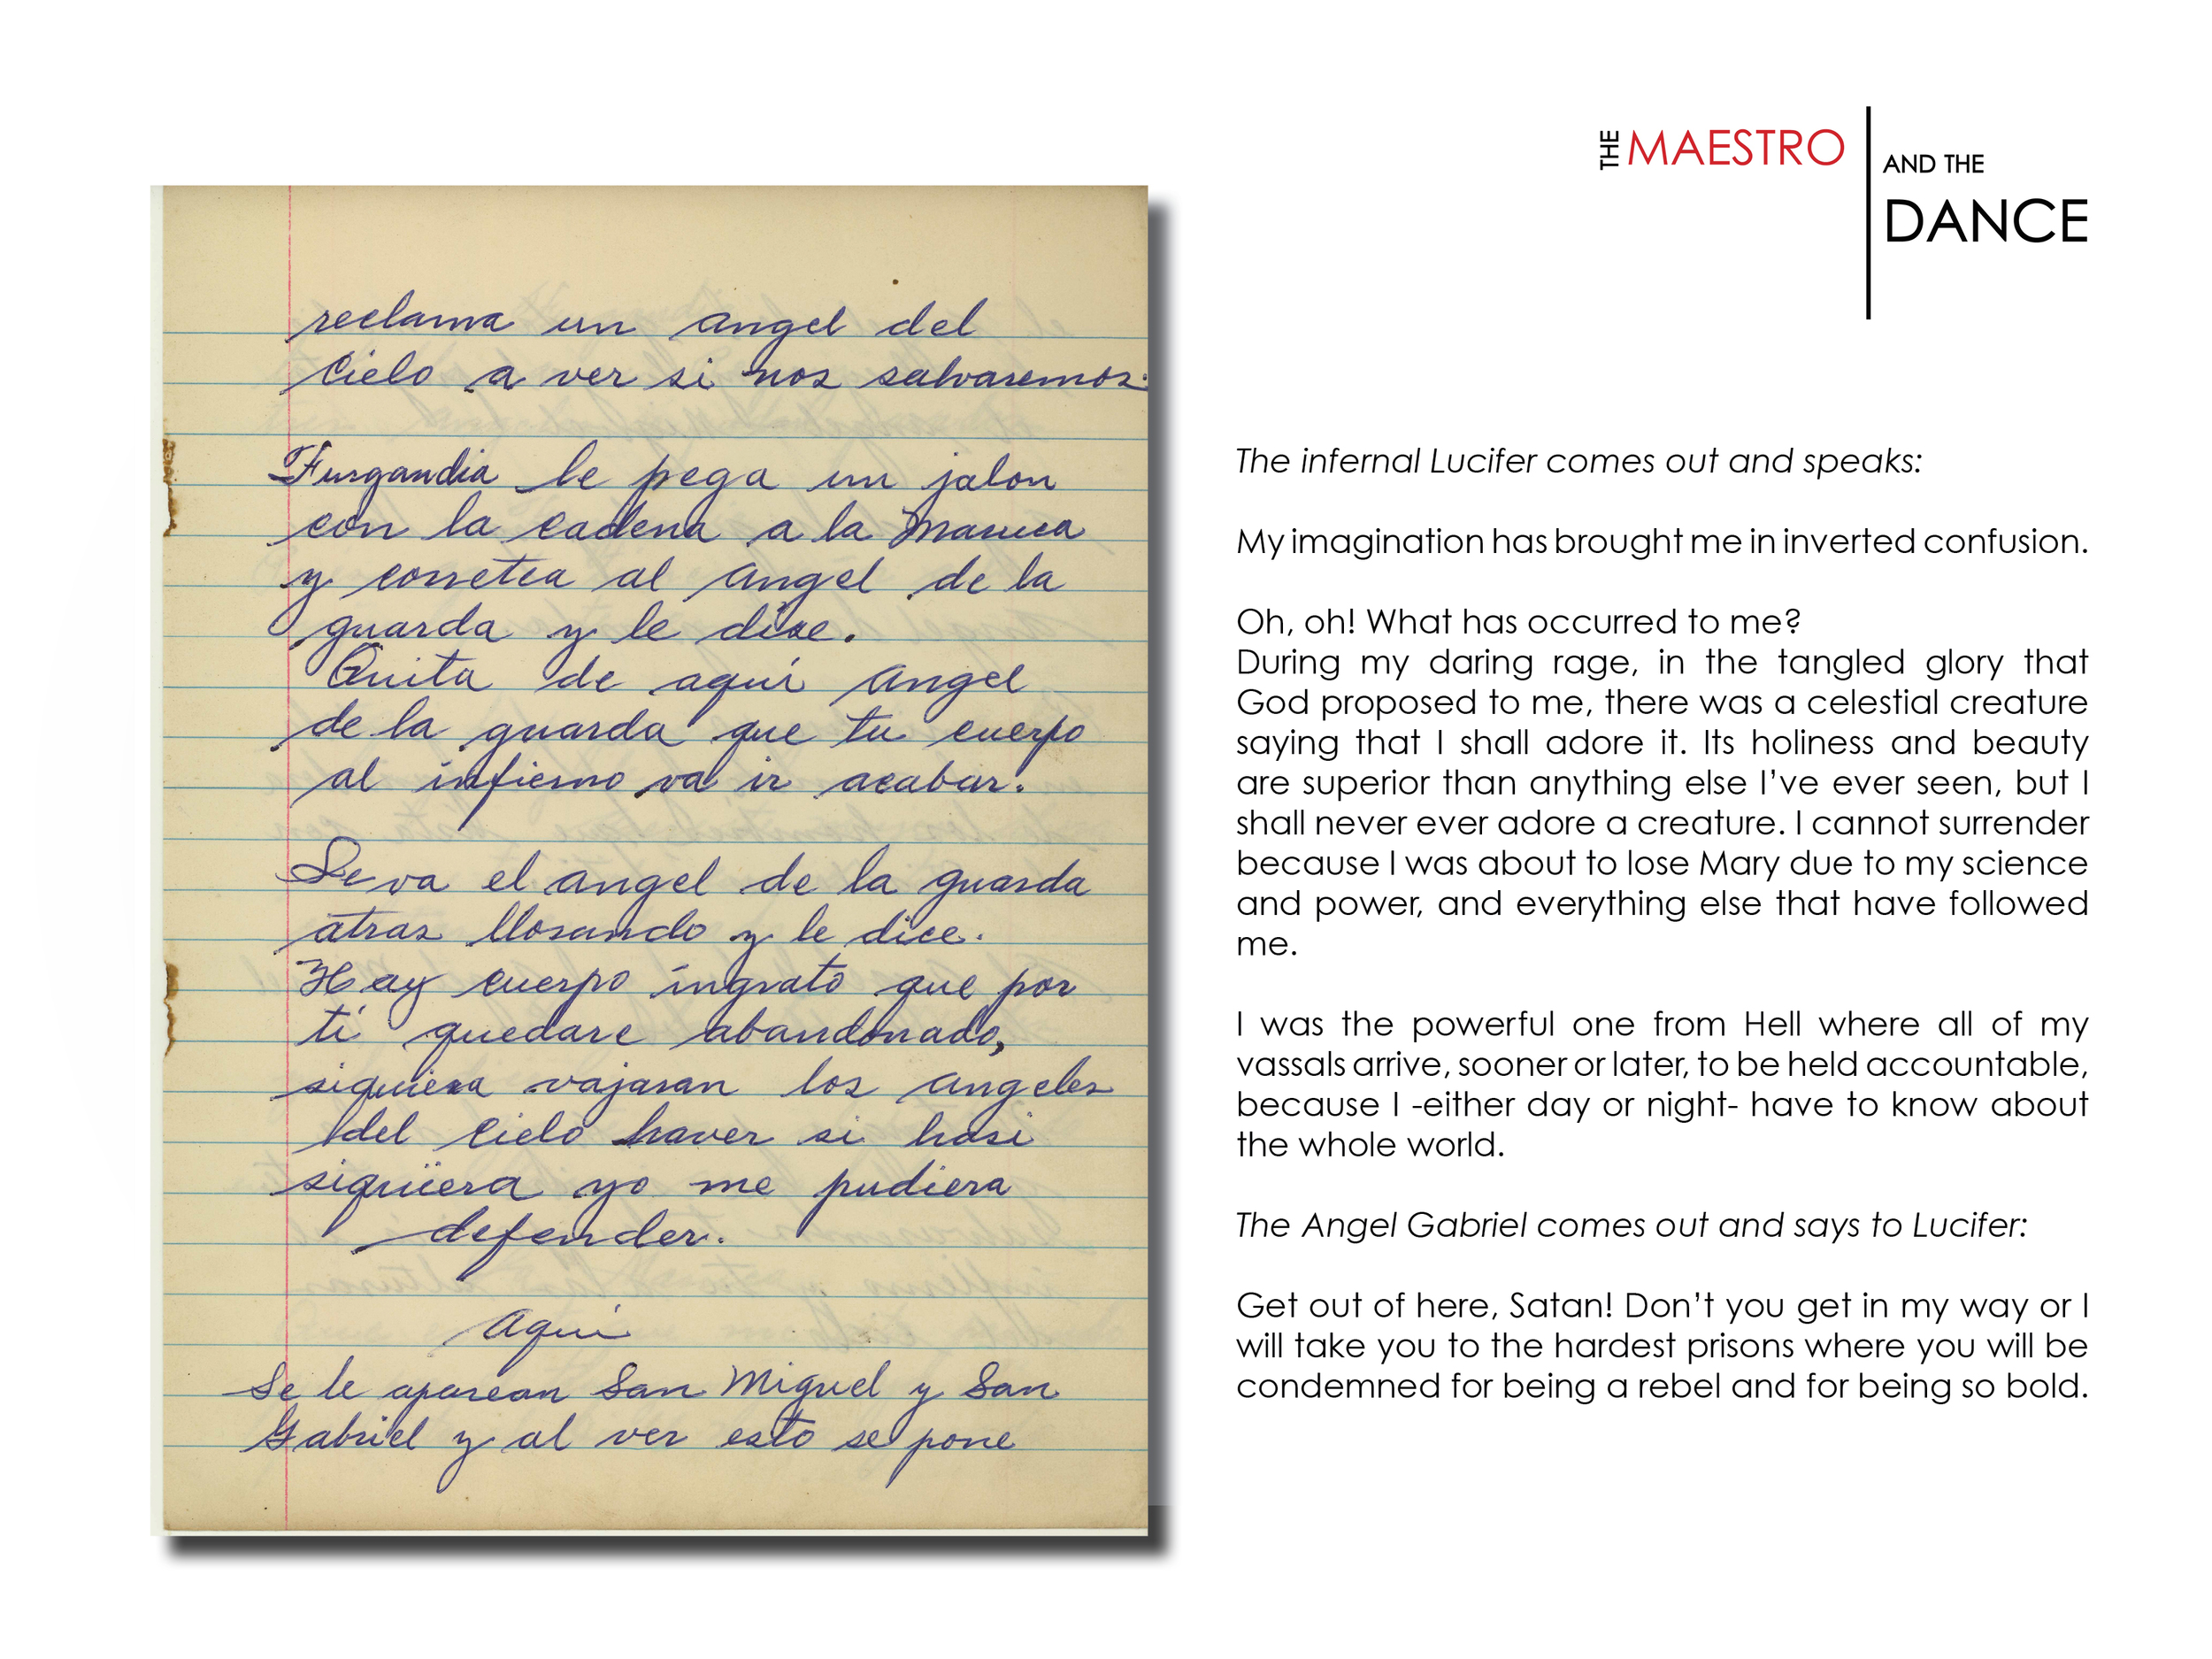 reclama un angel del
cielo a ver si nos salvaremos.
Furgandia le pega un jalon
con la cadena a la
y corretea al angel de la
guarda y le dice.
Quita de aquí angel
de la guarda que tu cuerpo
al infierno va ir acabar.
Se va el angel de la guarda
atras llorando y le dice.
Hay cuerpo ingrato que por
ti quedare abandonado,
siquiera vajaran los angeles
del cielo haver si hasi
siquiera yo me pudiera
defender.
Aqui
Se le aparean San Miguel y San
Gabriel y al ver esto se pone
THE MAESTRO
AND THE
DANCE
The infernal Lucifer comes out and speaks:
My imagination has brought me in inverted confusion.
Oh, oh! What has occurred to me?
During my daring rage, in the tangled glory that
God proposed to me, there was a celestial creature
saying that I shall adore it. Its holiness and beauty
are superior than anything else I’ve ever seen, but I
shall never ever adore a creature. I cannot surrender
because I was about to lose Mary due to my science
and power, and everything else that have followed
me.
I was the powerful one from Hell where all of my
vassals arrive, sooner or later, to be held accountable,
because I -either day or night- have to know about
the whole world.
The Angel Gabriel comes out and says to Lucifer:
Get out of here, Satan! Don’t you get in my way or I
will take you to the hardest prisons where you will be
condemned for being a rebel and for being so bold.